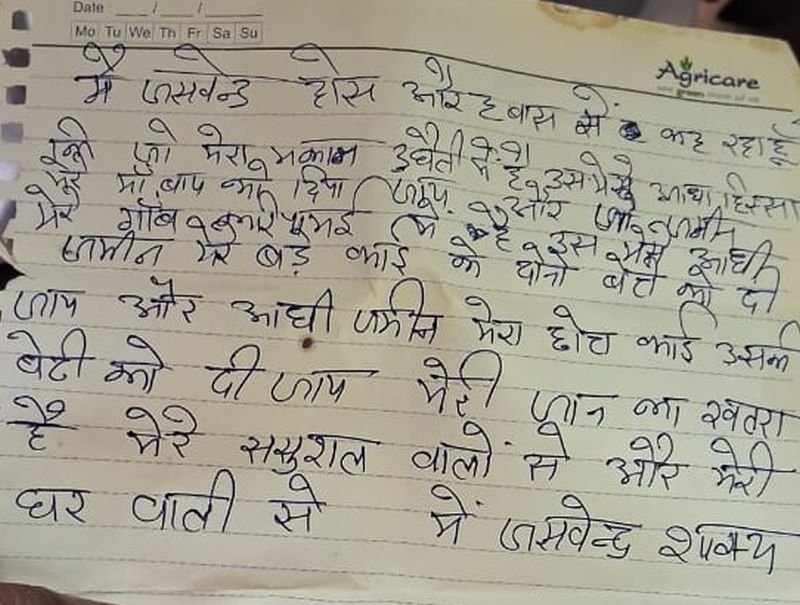 Date : ___/___/___
Mo Tu We Th Fr Sa Su
Agricare
मैं जसवेन्द्र होस और हवास से कह रहा हूँ
जो मेरा मकान में है उसमेसे आधा हिस्सा
मेरे माँ बाप को दिया जाय और जो जमीन
मेरे गाँव में है उस मेसे आधी
जमीन मेरे बड़े भाई के दोनो बेटो को दी
जाय और आधी जमीन मेरा छोटा भाई उसकी
बेटी को दी जाय मेरी जान का खतरा
है मेरे ससुराल वालों से और मेरी
घर वाली से में जसवेन्द्र शाक्य